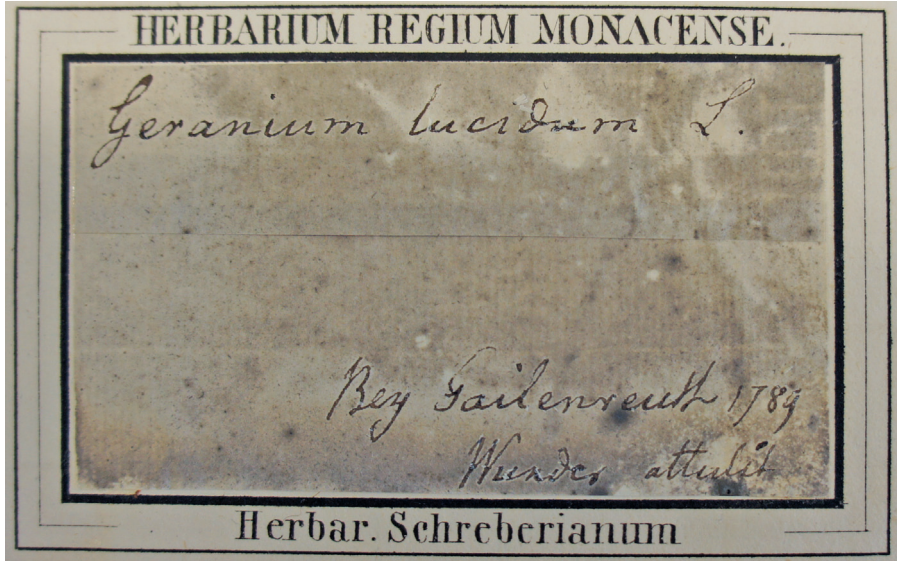 HERBARIUM REGIUM MONACENSE.
Geranium lucidum L.
Bey Gailenreuth 1789
Wunder attulit
Herbar. Schreberianum